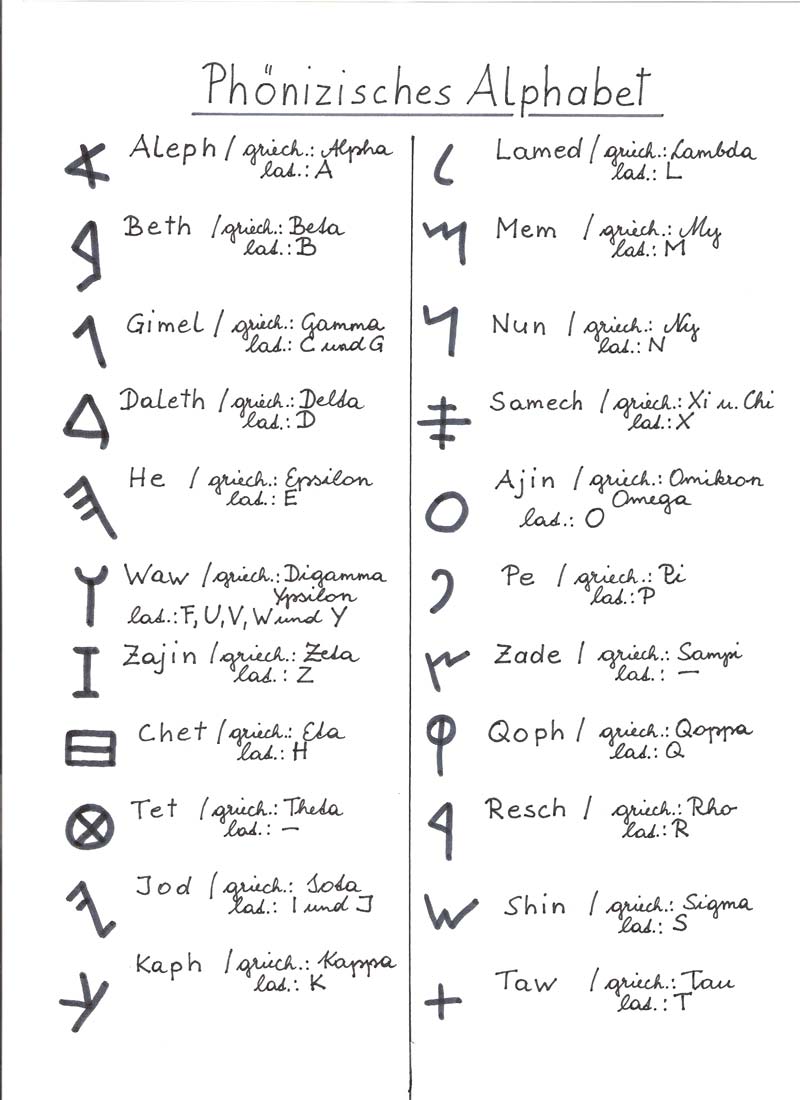 Phönizisches Alphabet
Aleph / griech.: Alpha
lat.: A
Beth / griech.: Beta
lat.: B
Gimel / griech.: Gamma
lat.: C und G
Daleth / griech.: Delta
lat.: D
He / griech.: Epsilon
lat.: E
Waw / griech.: Digamma
Ypsilon
lat.: F, U, V, W und Y
Zajin / griech.: Zeta
lat.: Z
Chet / griech.: Eta
lat.: H
Tet / griech.: Theta
lat.: —
Jod / griech.: Jota
lat.: I und J
Kaph / griech.: Kappa
lat.: K
Lamed / griech.: Lambda
lat.: L
Mem / griech.: My
lat.: M
Nun / griech.: Ny
lat.: N
Samech / griech.: Xi u. Chi
lat.: X
Ajin / griech.: Omikron
Omega
lat.: O
Pe / griech.: Pi
lat.: P
Zade / griech.: Sampi
lat.: —
Qoph / griech.: Qoppa
lat.: Q
Resch / griech.: Rho
lat.: R
Shin / griech.: Sigma
lat.: S
Taw / griech.: Tau
lat.: T